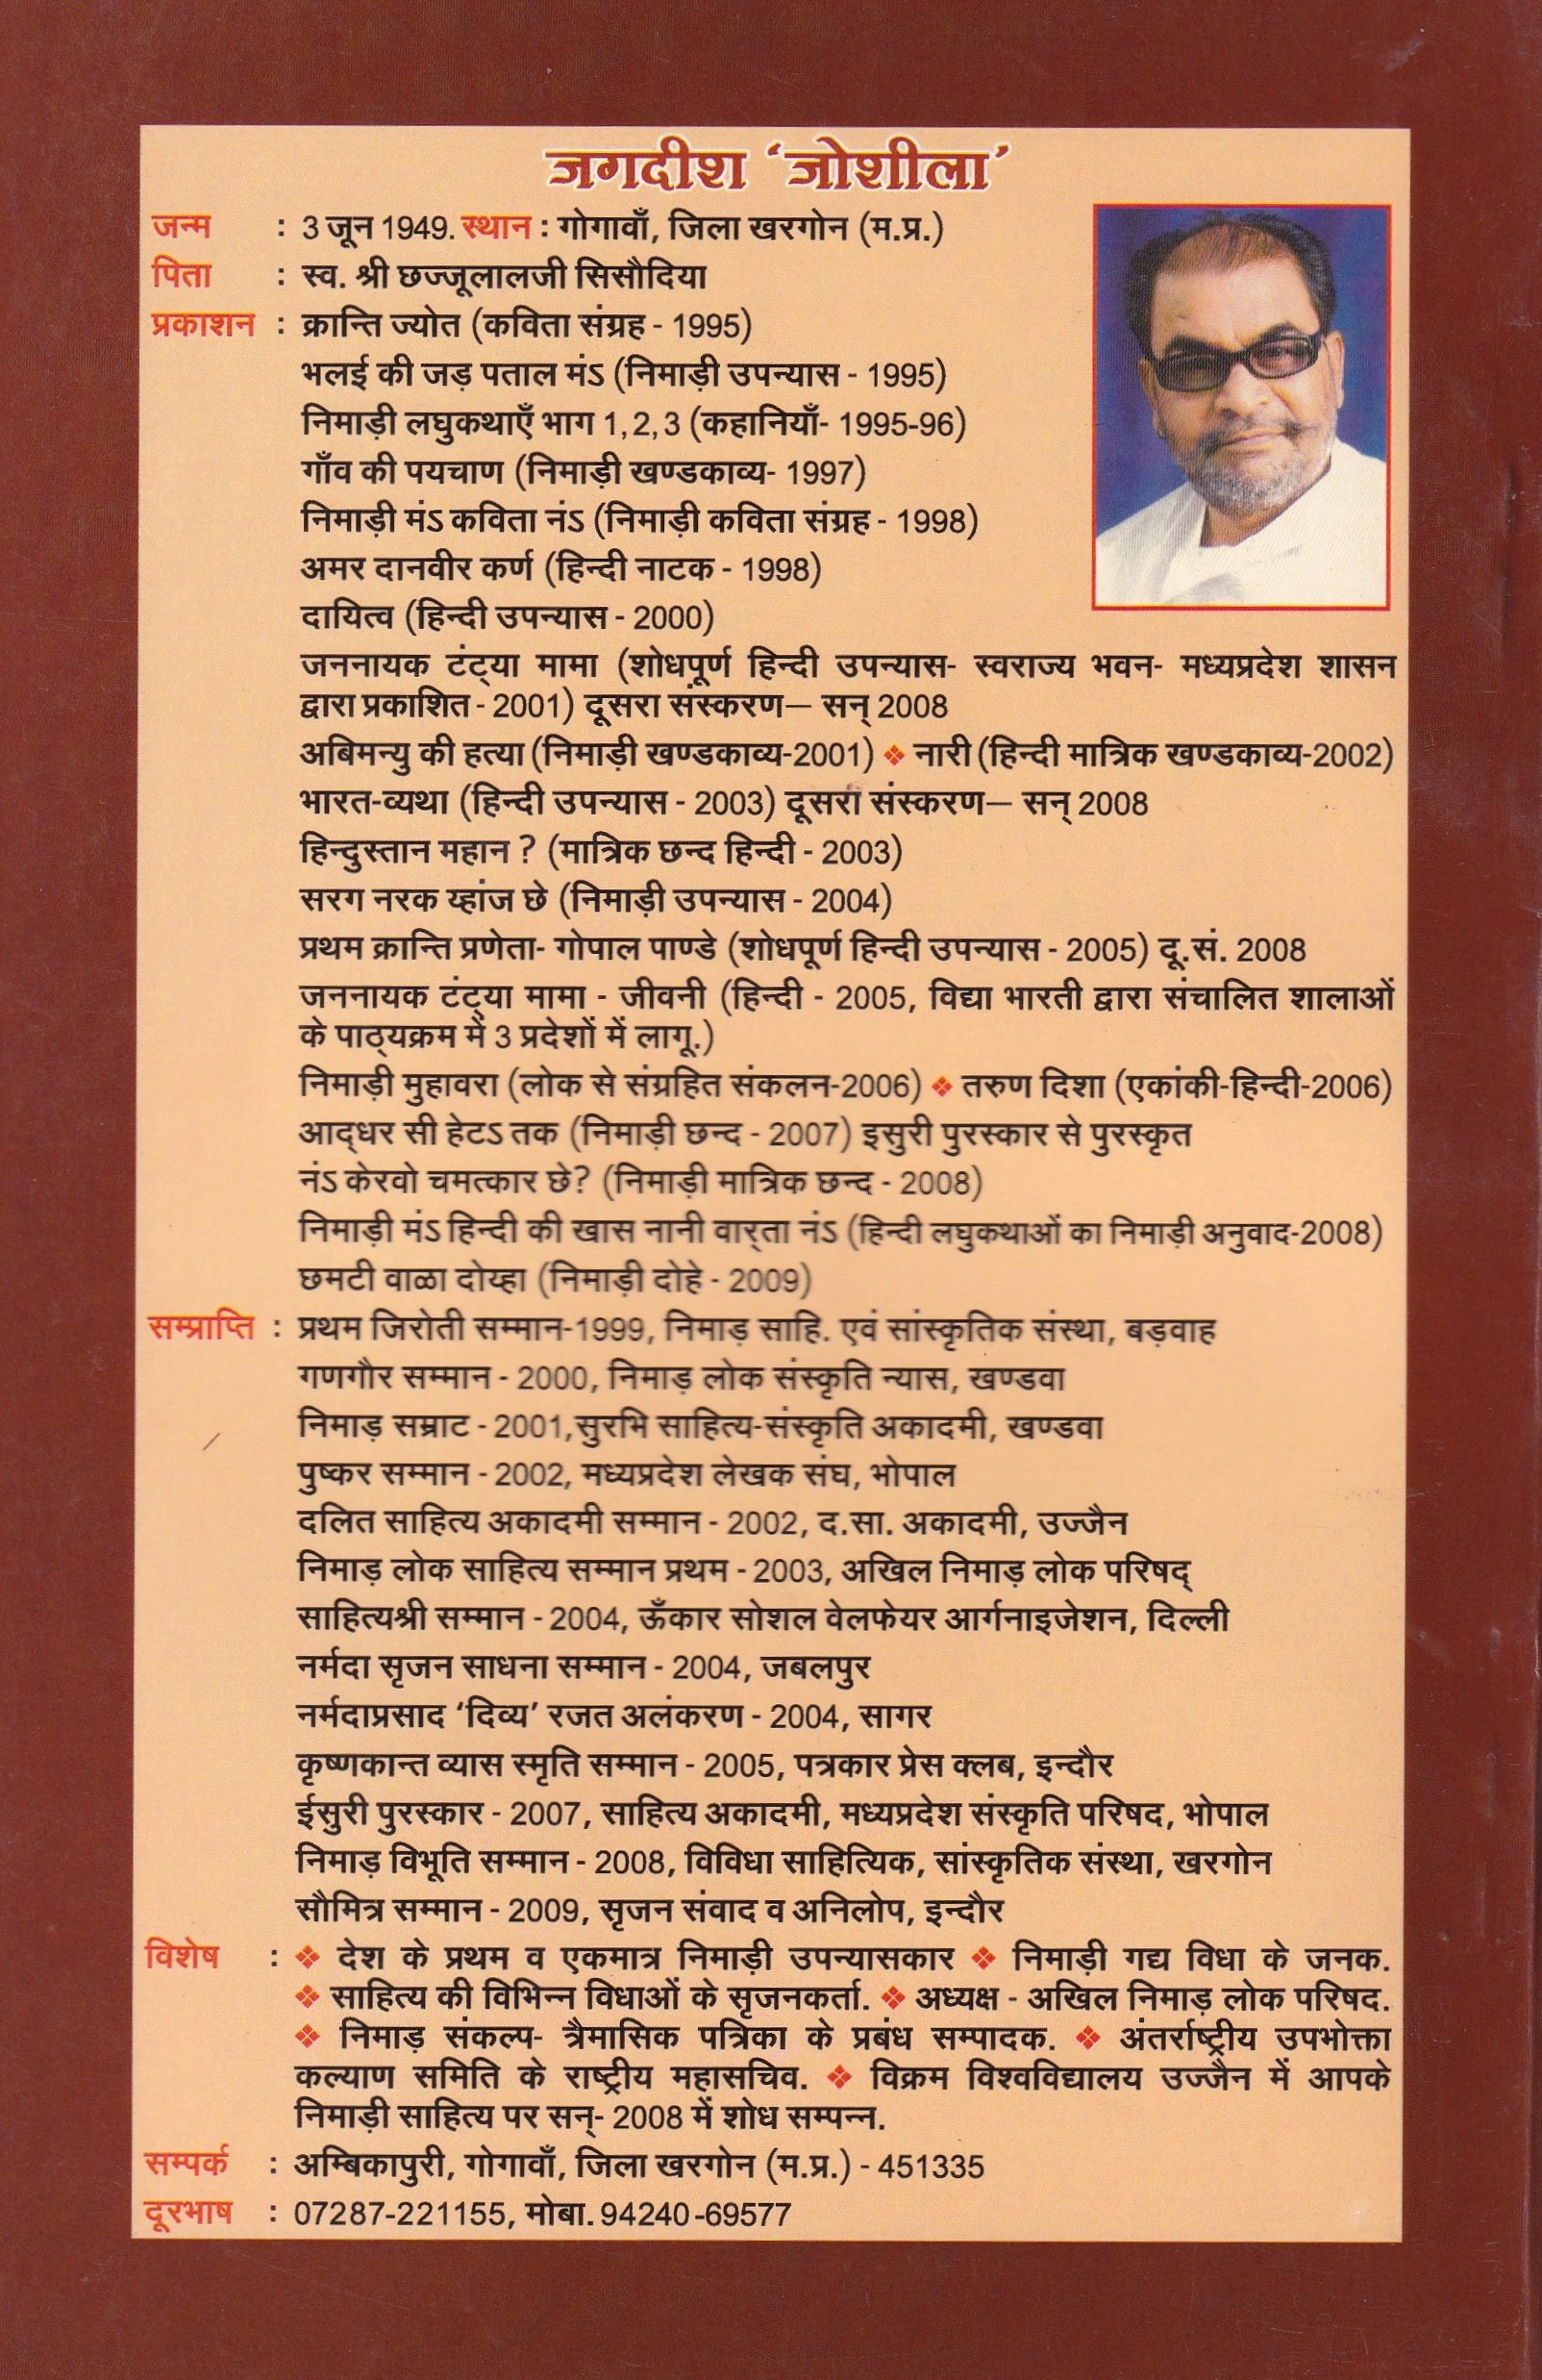 जगदीश 'जोशीला'
जन्म : 3 जून 1949. स्थान : गोगावाँ, जिला खरगोन (म.प्र.)
पिता : स्व. श्री छज्जूलालजी सिसौदिया
प्रकाशन : क्रान्ति ज्योत (कविता संग्रह - 1995)
भलई की जड़ पताल मंऽ (निमाड़ी उपन्यास - 1995)
निमाड़ी लघुकथाएँ भाग 1,2,3 (कहानियाँ- 1995-96)
गाँव की पयचाण (निमाड़ी खण्डकाव्य- 1997)
निमाड़ी मंऽ कविता नंऽ (निमाड़ी कविता संग्रह - 1998)
अमर दानवीर कर्ण (हिन्दी नाटक - 1998)
दायित्व (हिन्दी उपन्यास - 2000)
जननायक टंट्या मामा (शोधपूर्ण हिन्दी उपन्यास- स्वराज्य भवन- मध्यप्रदेश शासन
द्वारा प्रकाशित - 2001) दूसरा संस्करण— सन् 2008
अबिमन्यु की हत्या (निमाड़ी खण्डकाव्य-2001) ❖ नारी (हिन्दी मात्रिक खण्डकाव्य-2002)
भारत-व्यथा (हिन्दी उपन्यास - 2003) दूसरा संस्करण— सन् 2008
हिन्दुस्तान महान ? (मात्रिक छन्द हिन्दी - 2003)
सरग नरक य्हांज छे (निमाड़ी उपन्यास - 2004)
प्रथम क्रान्ति प्रणेता- गोपाल पाण्डे (शोधपूर्ण हिन्दी उपन्यास - 2005) दू.सं. 2008
जननायक टंट्या मामा - जीवनी (हिन्दी - 2005, विद्या भारती द्वारा संचालित शालाओं
के पाठ्यक्रम में 3 प्रदेशों में लागू.)
निमाड़ी मुहावरा (लोक से संग्रहित संकलन-2006) ❖ तरुण दिशा (एकांकी-हिन्दी-2006)
आद्धर सी हेटऽ तक (निमाड़ी छन्द - 2007) इसुरी पुरस्कार से पुरस्कृत
नंऽ केरवो चमत्कार छे? (निमाड़ी मात्रिक छन्द - 2008)
निमाड़ी मंऽ हिन्दी की खास नानी वार्‌ता नंऽ (हिन्दी लघुकथाओं का निमाड़ी अनुवाद-2008)
छमटी वाळा दोय्हा (निमाड़ी दोहे - 2009)
सम्प्राप्ति : प्रथम जिरोती सम्मान-1999, निमाड़ साहि. एवं सांस्कृतिक संस्था, बड़वाह
गणगौर सम्मान - 2000, निमाड़ लोक संस्कृति न्यास, खण्डवा
निमाड़ सम्राट - 2001,सुरभि साहित्य-संस्कृति अकादमी, खण्डवा
पुष्कर सम्मान - 2002, मध्यप्रदेश लेखक संघ, भोपाल
दलित साहित्य अकादमी सम्मान - 2002, द.सा. अकादमी, उज्जैन
निमाड़ लोक साहित्य सम्मान प्रथम - 2003, अखिल निमाड़ लोक परिषद्
साहित्यश्री सम्मान - 2004, ऊँकार सोशल वेलफेयर आर्गनाइजेशन, दिल्ली
नर्मदा सृजन साधना सम्मान - 2004, जबलपुर
नर्मदाप्रसाद 'दिव्य' रजत अलंकरण - 2004, सागर
कृष्णकान्त व्यास स्मृति सम्मान - 2005, पत्रकार प्रेस क्लब, इन्दौर
ईसुरी पुरस्कार - 2007, साहित्य अकादमी, मध्यप्रदेश संस्कृति परिषद, भोपाल
निमाड़ विभूति सम्मान - 2008, विविधा साहित्यिक, सांस्कृतिक संस्था, खरगोन
सौमित्र सम्मान - 2009, सृजन संवाद व अनिलोप, इन्दौर
विशेष : ❖ देश के प्रथम व एकमात्र निमाड़ी उपन्यासकार ❖ निमाड़ी गद्य विधा के जनक.
❖ साहित्य की विभिन्न विधाओं के सृजनकर्ता. ❖ अध्यक्ष - अखिल निमाड़ लोक परिषद.
❖ निमाड़ संकल्प- त्रैमासिक पत्रिका के प्रबंध सम्पादक. ❖ अंतर्राष्ट्रीय उपभोक्ता
कल्याण समिति के राष्ट्रीय महासचिव. ❖ विक्रम विश्वविद्यालय उज्जैन में आपके
निमाड़ी साहित्य पर सन्- 2008 में शोध सम्पन्न.
सम्पर्क : अम्बिकापुरी, गोगावाँ, जिला खरगोन (म.प्र.) - 451335
दूरभाष : 07287-221155, मोबा. 94240-69577